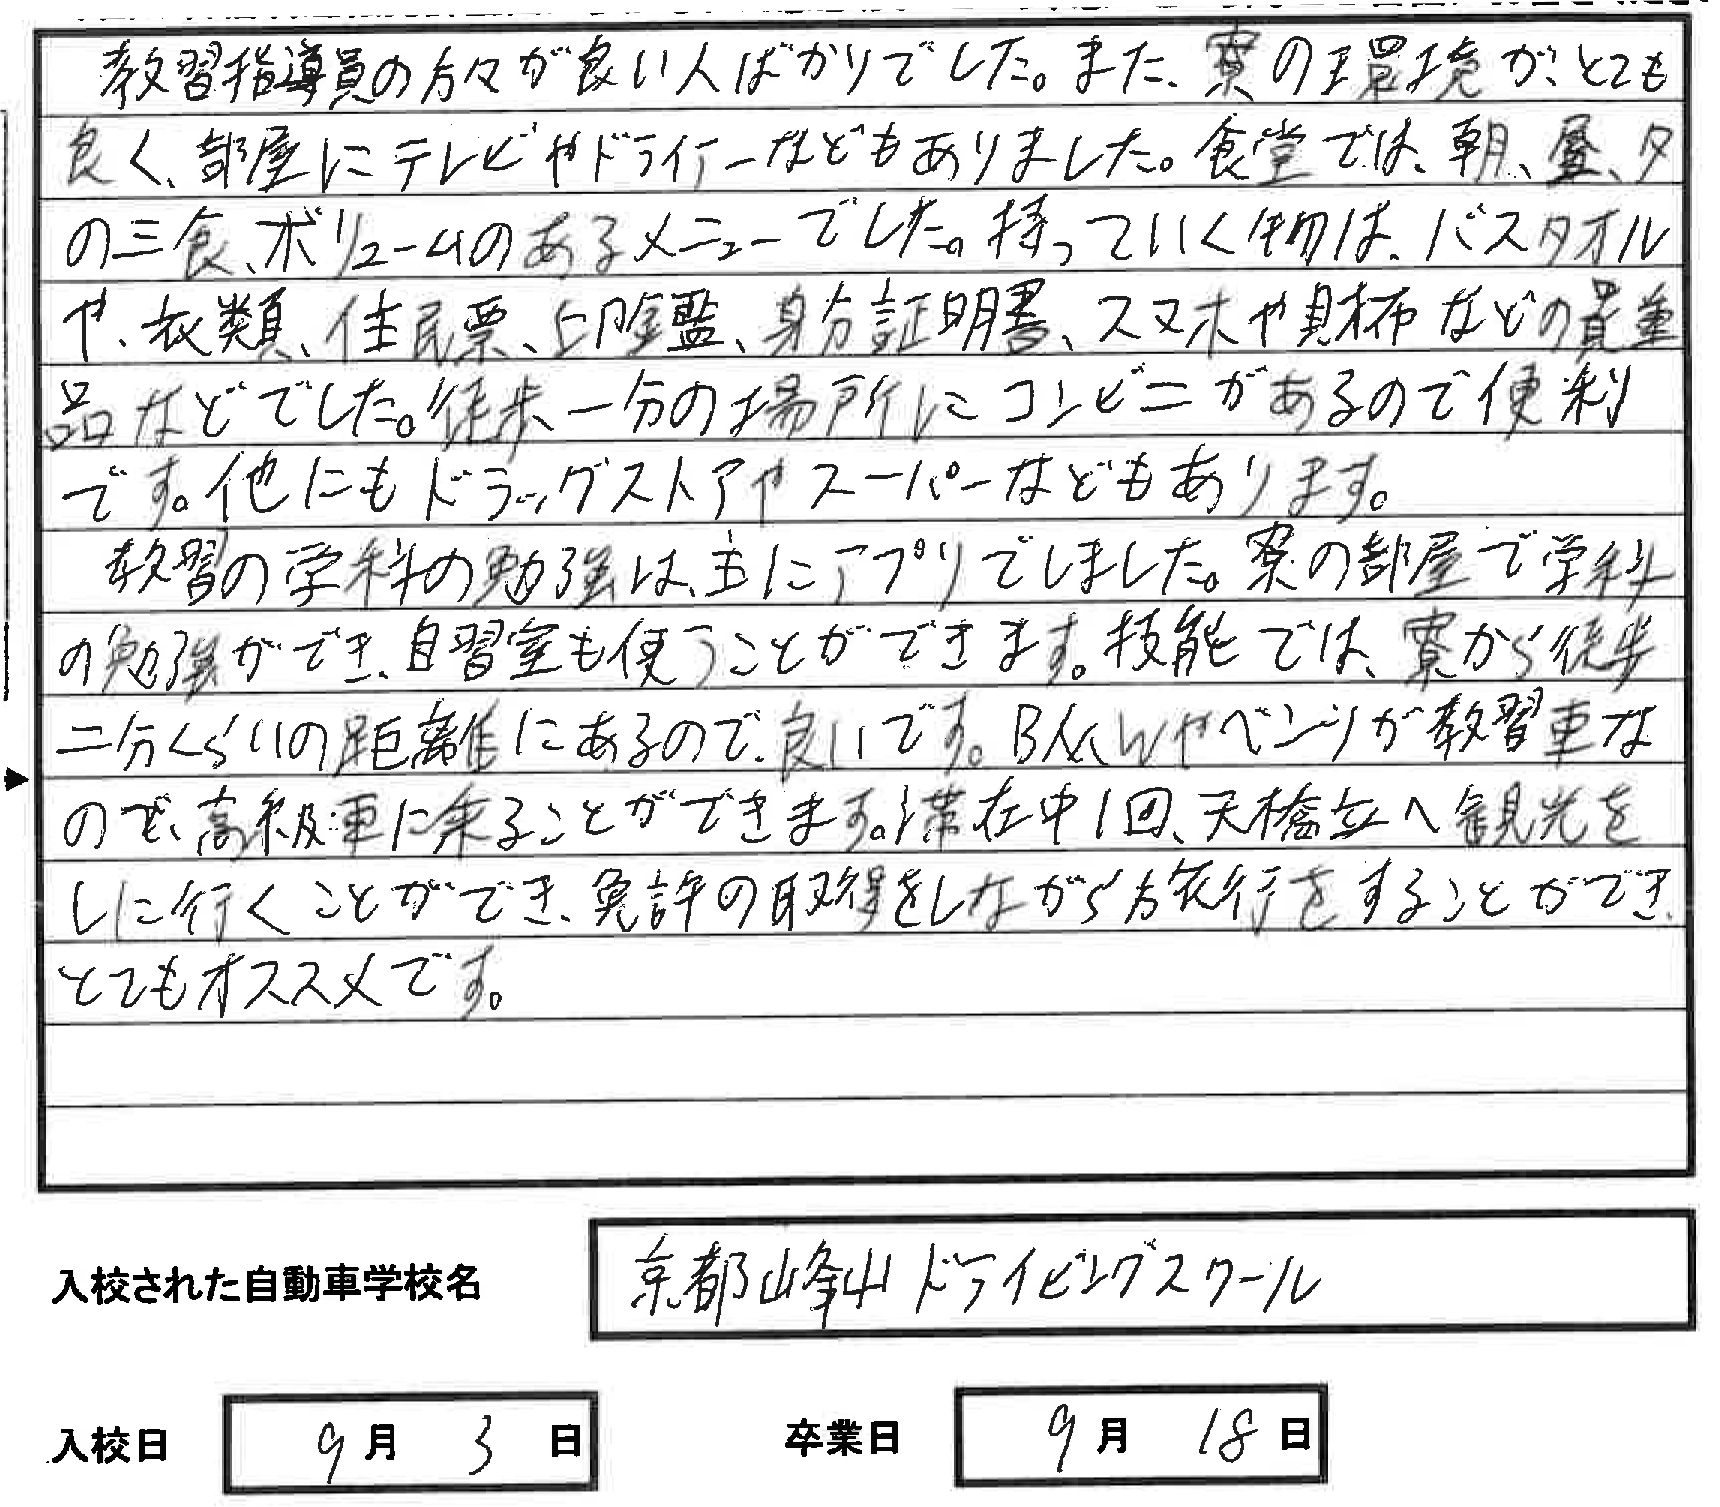 教習指導員の方々が良い人ばかりでした。また、寮の環境が、とても
良く、部屋にテレビやドライヤーなどもありました。食堂では、朝、昼、夕
の三食、ボリュームのあるメニューでした。持っていく物は、バスタオル
や、衣類、住民票、印鑑、身分証明書、スマホや財布などの貴重
品などでした。徒歩一分の場所にコンビニがあるので便利
です。他にもドラッグストアやスーパーなどもあります。
教習の学科の勉強は、主にアプリでしました。寮の部屋で学科
の勉強ができ、自習室も使うことができます。技能では、寮から徒歩
二分くらいの距離にあるので、良いです。BMWやベンツが教習車な
ので、高級車に乗ることができます。滞在中1回、天橋立へ観光を
しに行くことができ、免許の取得をしながら旅行をすることができ、
とてもオススメです。
入校された自動車学校名
京都峰山ドライビングスクール
入校日 9月 3日 卒業日 9月 18日